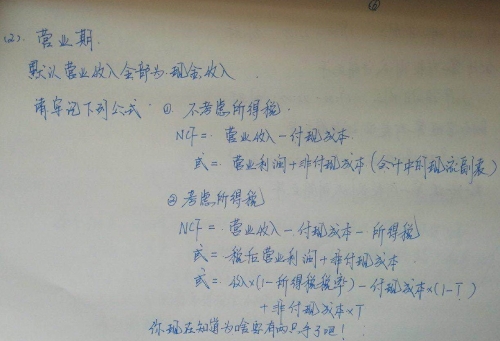 (2). 营业期.
默认营业收入全部为现金收入.
请牢记下列公式 ① 不考虑所得税.
NCF = 营业收入 - 付现成本.
或 = 营业利润 + 非付现成本 (会计中的现流副表)
② 考虑所得税
NCF = 营业收入 - 付现成本 - 所得税
或 = 税后营业利润 + 非付现成本.
或 = 收入×(1-所得税税率) - 付现成本×(1-T)
+ 非付现成本×T
你现在知道为啥要有两只手了吧!